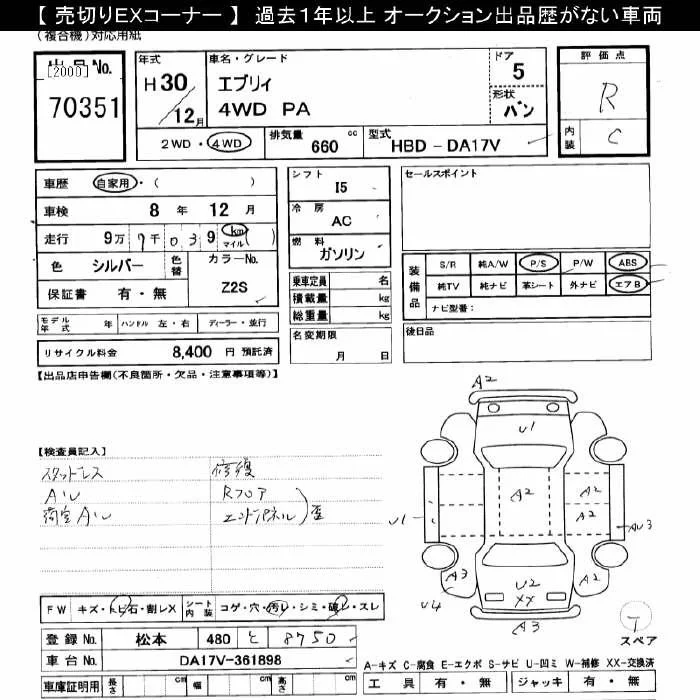 【 売切りEXコーナー 】 過去1年以上 オークション出品歴がない車両
(複合機)対応用紙
[2000] No.
70351
年式
H30
12月
車名・グレード
エブリィ
4WD PA
ドア
5
形状
バン
評価点
R
内装
C
2WD・4WD
排気量
660 cc
型式
HBD-DA17V
車歴 自家用・( )
車検 8 年 12 月
走行 9万 7千 039 km マイル ( )
色 シルバー 色替 カラーNo.
Z2S
保証書 有・無
シフト
I5
冷房
AC
燃料
ガソリン
乗車定員 名
積載量 kg
総重量 kg
名変期限
月 日
セールスポイント
装備品
S/R 純A/W P/S P/W ABS
純TV 純ナビ 革シート 外ナビ エアB
ナビ型番:
後日品
モデル年式 年 ハンドル 左・右 ディーラー・並行
リサイクル料金 8,400 円 預託済
【出品店申告欄(不良箇所・欠品・注意事項等)】
【検査員記入】
スタットレス 修復
AU Rフロア
荷室AU エンドパネル 歪
A2
U1
A2
A2
A2
U1
AU3
A3
U4
U2
XX
A2
A3
T
スペア
FW キズ・トビ石・割レX シート内装 コゲ・穴・汚レ・シミ・破レ・スレ
登録 No. 松本 480 と 8750
車台 No. DA17V-361898
車庫証明用 長さ cm 幅 cm 高さ cm
A-キズ C-腐食 E-エクボ S-サビ U-凹ミ W-補修 XX-交換済
工具 有・無 ジャッキ 有・無